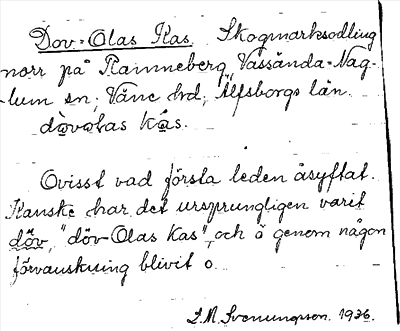 Dov-Olas Kas. Skogmarksodling
norr på Ramneberg, Vassända-Nag-
lum sn; Väne hrd; Älfsborgs län.
dòvolas kás.
Ovisst vad första leden åsyftat.
Kanske har det ursprungligen varit
döv, "döv-Olas Kas", och ö genom någon
förvanskning blivit o.
J.M. Svenungson. 1936.